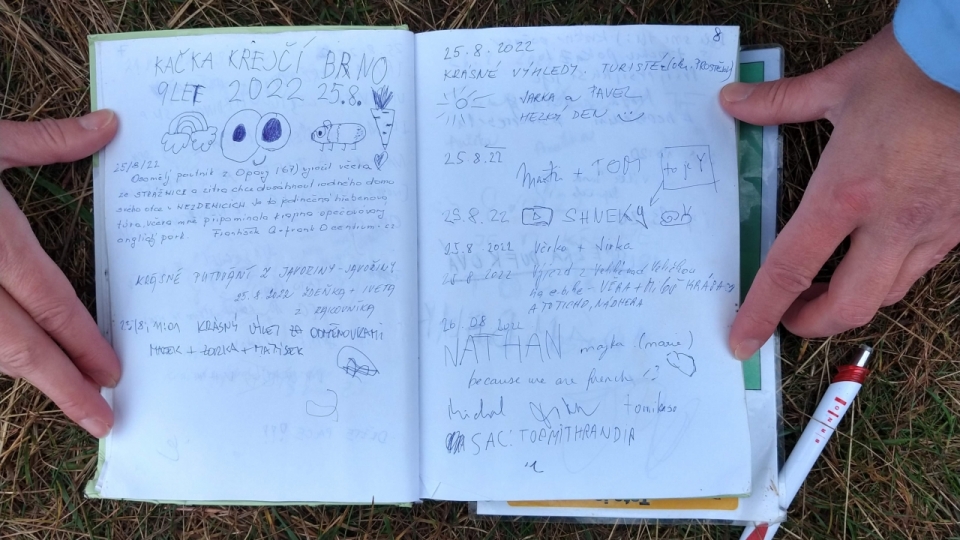 KAČKA KŘEJČÍ BRNO
9 LET 2022 25.8.
25/8/22
Osamělý poutník z Opavy (67) vyrazil včera
ze STRÁŽNICE a zítra chce dosáhnout rodného domu
svého otce v NEZDENICÍCH. Je to jedinečná hřebenová
túra, včera mně připomínala krajina opečovávaný
anglický park. František
KRÁSNÉ PUTOVÁNÍ Z JAVOŘINY-JAVOŘINY
25.8.2022 ZDEŇKA + IVETA
Z RAKOVNÍKA
25/8, 11:01 KRÁSNÝ VÝLET
MAREK + + MATÝSEK
8
25.8.2022
KRÁSNÉ VÝHLEDY. TURISTÉ (OKR. PROSTĚJOV)
JARKA a PAVEL
HEZKÝ DEN
25.8.22
+ TOPI
25.8.22 SHNEKY
25.8.2022 Věrka + Jirka
28.8.2022 Výjezd z Velké nad Veličkou
na e-bike - VĚRA +
A TO TICHO, NÁDHERA
26.08.2022
NATHAN majka (marie)
because we are french !?
Michal tomikaso
SAC: TOPMITHRANDIR